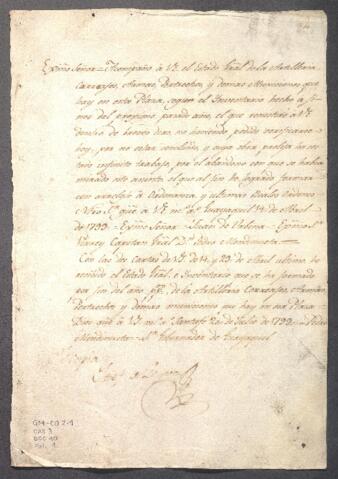 Exmo Señor = Acompaño a VE. el Estado Gral de la Artilleria
Carruajes, Armas, Pertrechos y demas Municiones que
hay en esta Plaza, segun el Inventario hecho a fi-
nes del proximo pasado año, el que remitiré a VE
dentro de breves dias no haviendo podido verificarse
hoy, por no estar concluido, y cuya obra prolixa ha cos-
tado infinito trabajo, por el abandono con que se havia
mirado este asunto el que al fin he logrado formar
con arreglo a Ordenanza, y ultimas Reales Ordenes
Ntro Sr. gue a VE. ms. as. Guayaquil 14 de Abril
de 1793 = Exmo Señor = Juan de Urbina = Exmo Sr.
Virrey Capitan Gral Dn. Pedro Mendinueta =
Con las dos Cartas de VS. de 14, y 23 de Abril ultimo he
recibido el Estado Gral, e Inventario que se ha formado
por fin del año de la Artilleria Carruajes, Armas,
Pertrechos y demas municiones que hay en esa Plaza
Dios gue a VS. ms. as. Santafé 20 de Julio de 1799 = Pedro
Mendinueta = Sr. Governador de Guayaquil
Es copia
GM-CO 2-1
CAS 3
DOC 40
FOL. 1